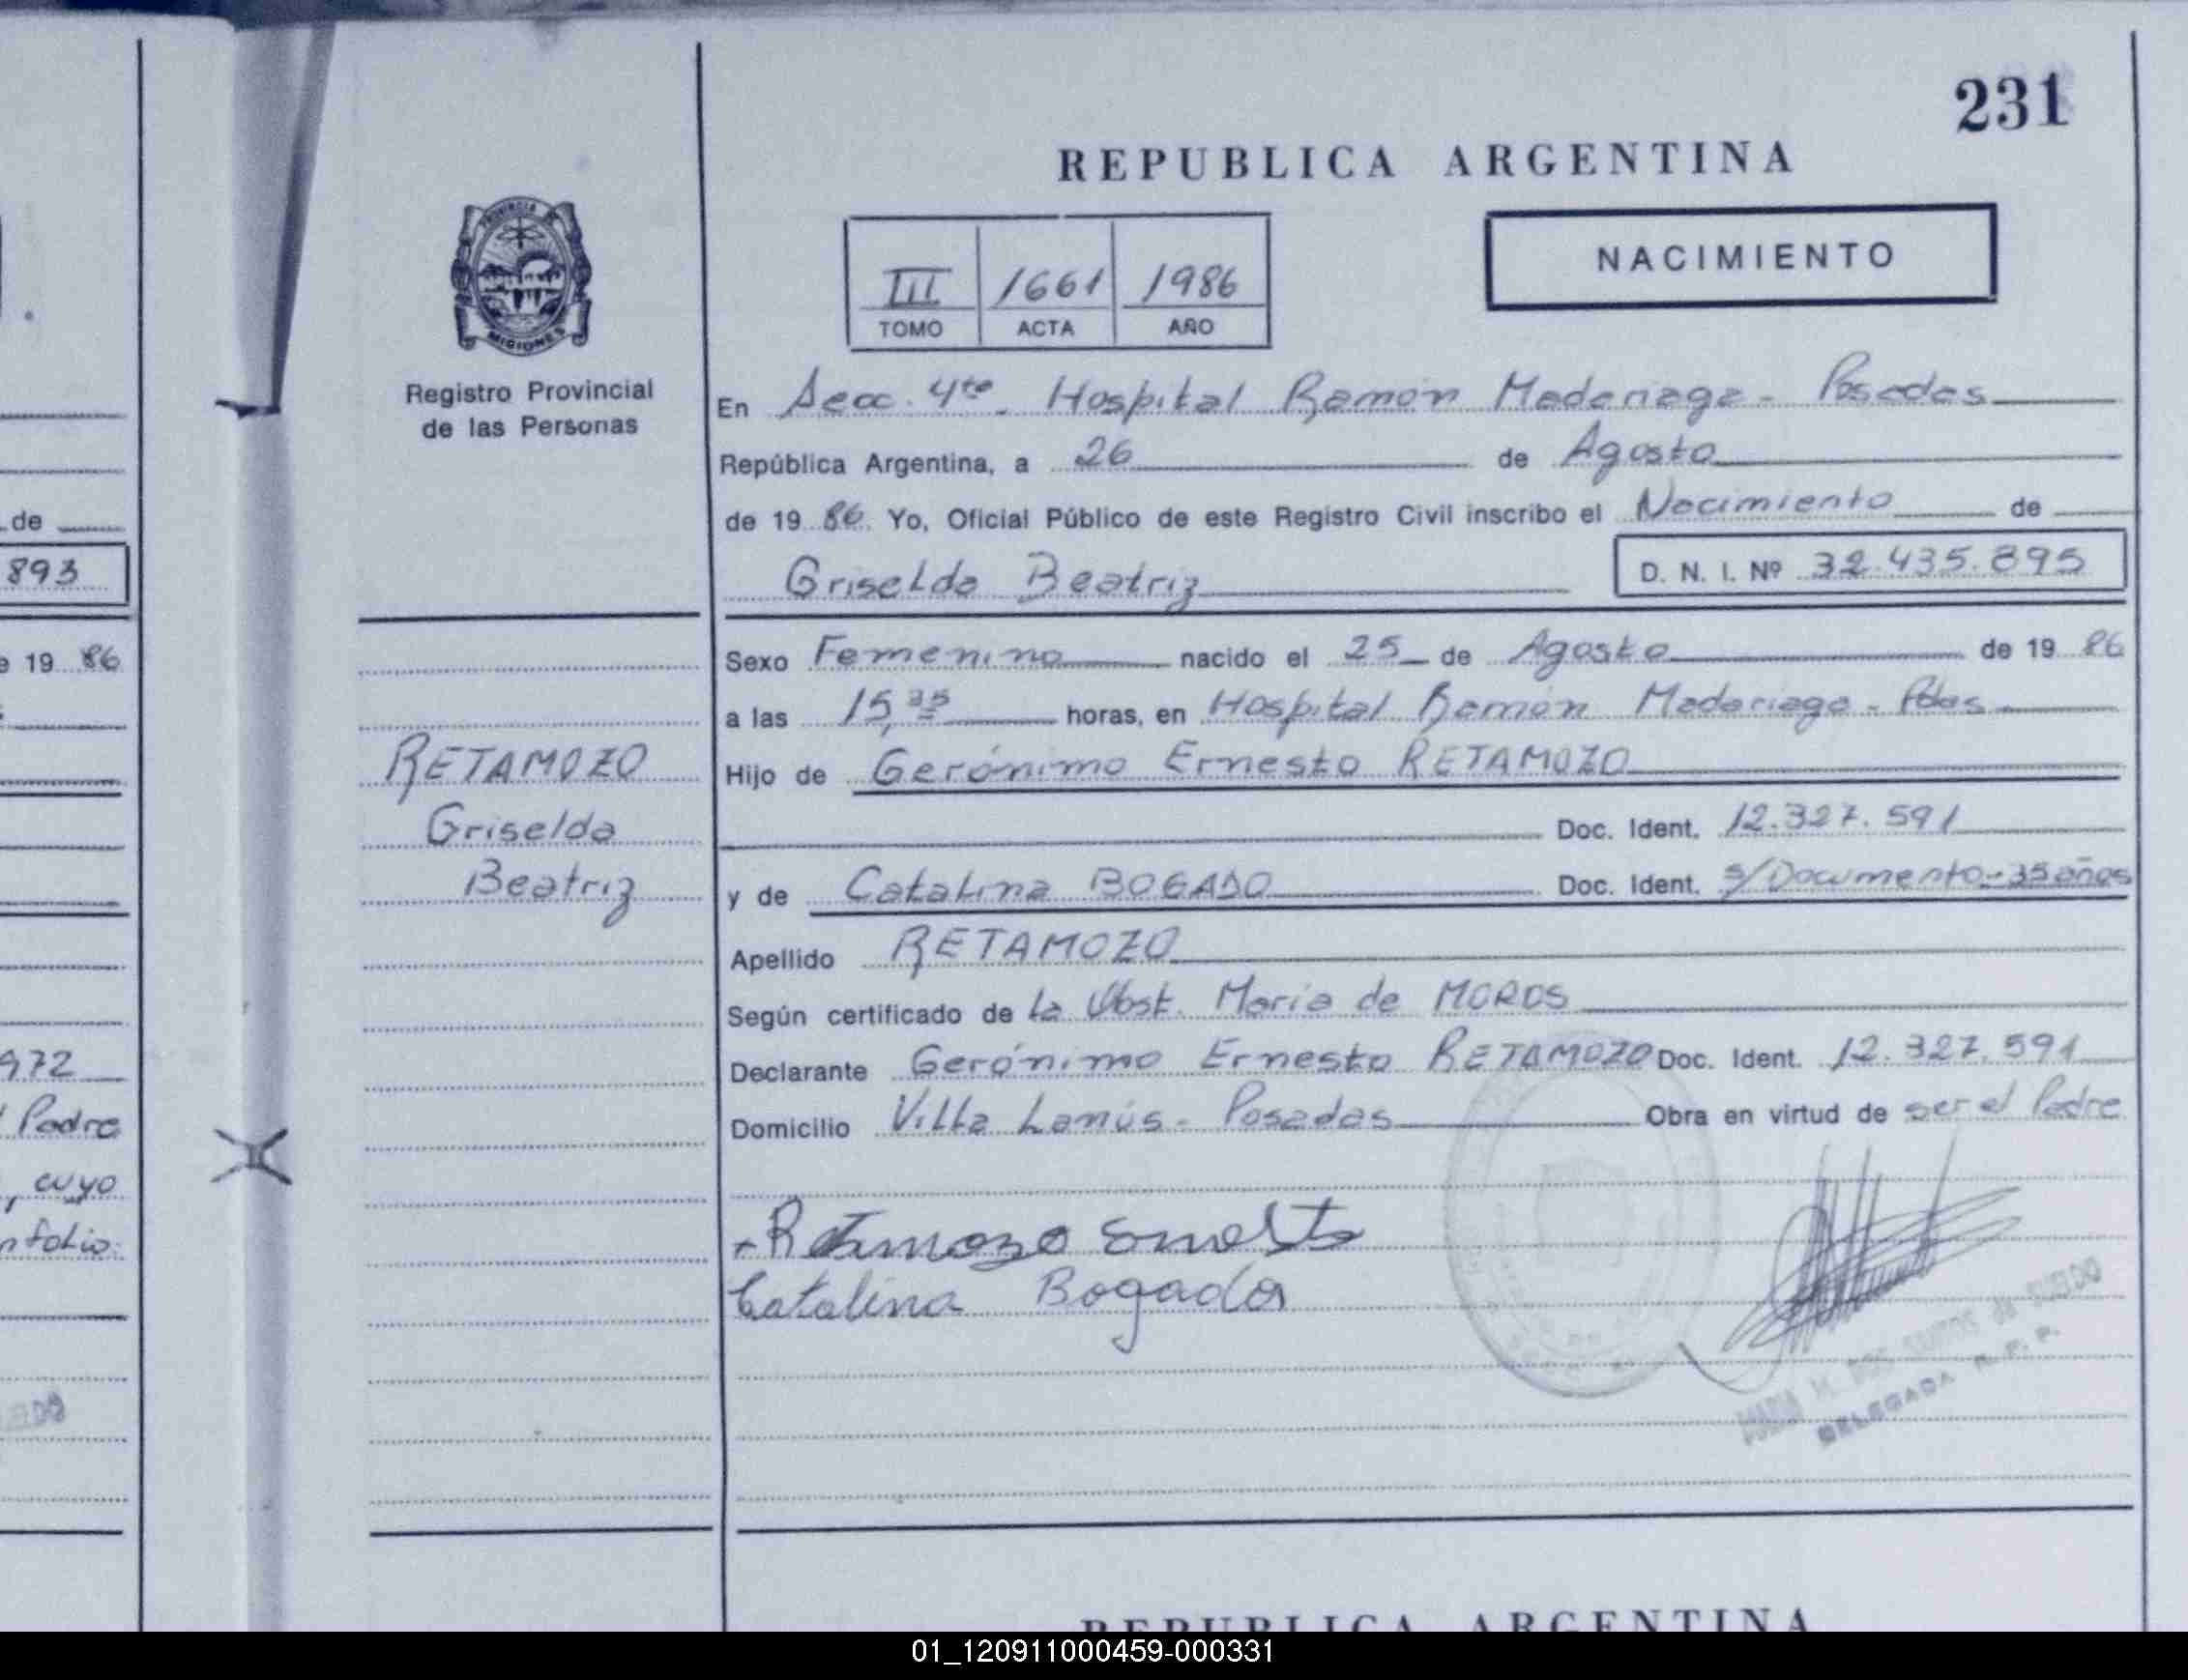 231
REPUBLICA ARGENTINA
NACIMIENTO
III 1661 1986
TOMO ACTA AÑO
PROVINCIA DE
MISIONES
Registro Provincial
de las Personas
En Secc. 4ta. Hospital Ramón Madariaga - Posadas
República Argentina, a 26 de Agosto
de 19 86. Yo, Oficial Público de este Registro Civil inscribo el Nacimiento de
Griselda Beatriz D. N. I. Nº 32.435.895
Sexo Femenino nacido el 25 de Agosto de 19 86
a las 15,35 horas, en Hospital Ramón Madariaga - Pdas
Hijo de Gerónimo Ernesto RETAMOZO
Doc. Ident. 12.327.591
y de Catalina BOGADO Doc. Ident. s/Documento - 35 años
Apellido RETAMOZO
Según certificado de la Obst. María de MOROS
Declarante Gerónimo Ernesto RETAMOZO Doc. Ident. 12.327.591
Domicilio Villa Lanús - Posadas Obra en virtud de ser el Padre
Retamozo Ernesto
Catalina Bogado
MARIA M. DOS SANTOS de
DELEGADA R. P. P.
RETAMOZO
Griselda
Beatriz
de
893
19 86
972
Padre
, cuyo
REPUBLICA ARGENTINA
01_120911000459-000331